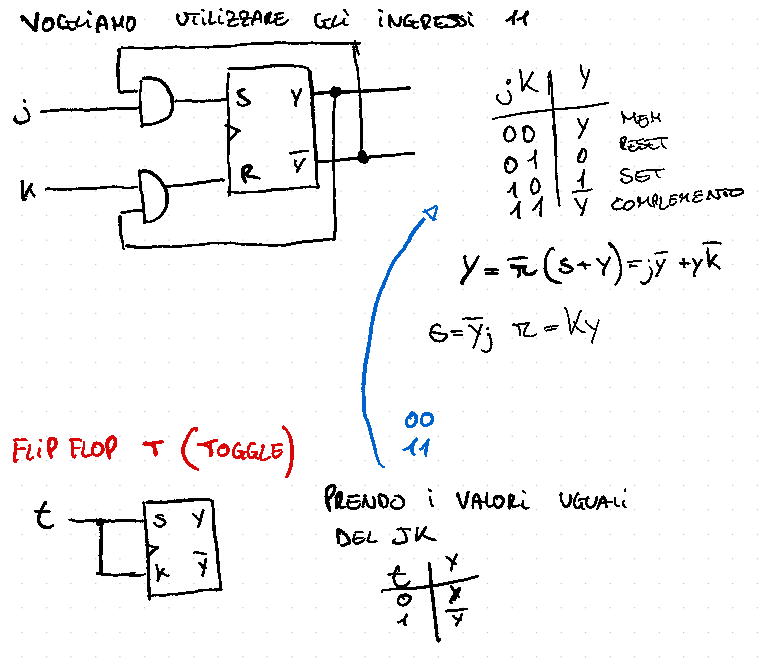 VOGLIAMO UTILIZZARE GLI INGRESSI 11
j
K
S Y
R Y̅
jK Y
00 Y MEM
01 0 RESET
10 1 SET
11 Y̅ COMPLEMENTO
Y = r̅ (S+Y) = jy̅ + yK̅
S = y̅j r = Ky
00
11
FLIP FLOP T (TOGGLE)
t
S Y
K Y̅
PRENDO I VALORI UGUALI
DEL JK
t Y
0 Y
1 Y̅